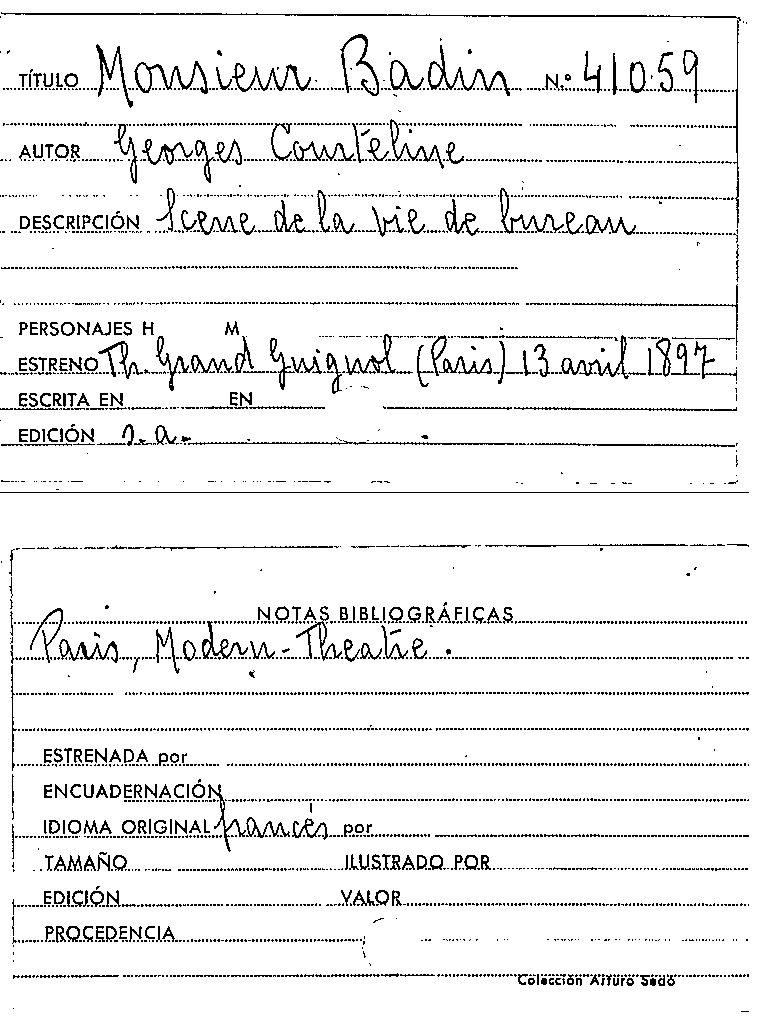 TÍTULO Monsieur Badin N.º 41059
AUTOR Georges Courteline
DESCRIPCIÓN Scene de la vie de bureau
PERSONAJES H M
ESTRENO Th. Grand Guignol (Paris) 13 avril 1897
ESCRITA EN EN
EDICIÓN s.a.
NOTAS BIBLIOGRÁFICAS
Paris, Modern-Theatre.
ESTRENADA por
ENCUADERNACIÓN
IDIOMA ORIGINAL francés por
TAMAÑO ILUSTRADO POR
EDICIÓN VALOR
PROCEDENCIA
Colección Arturo Sedó